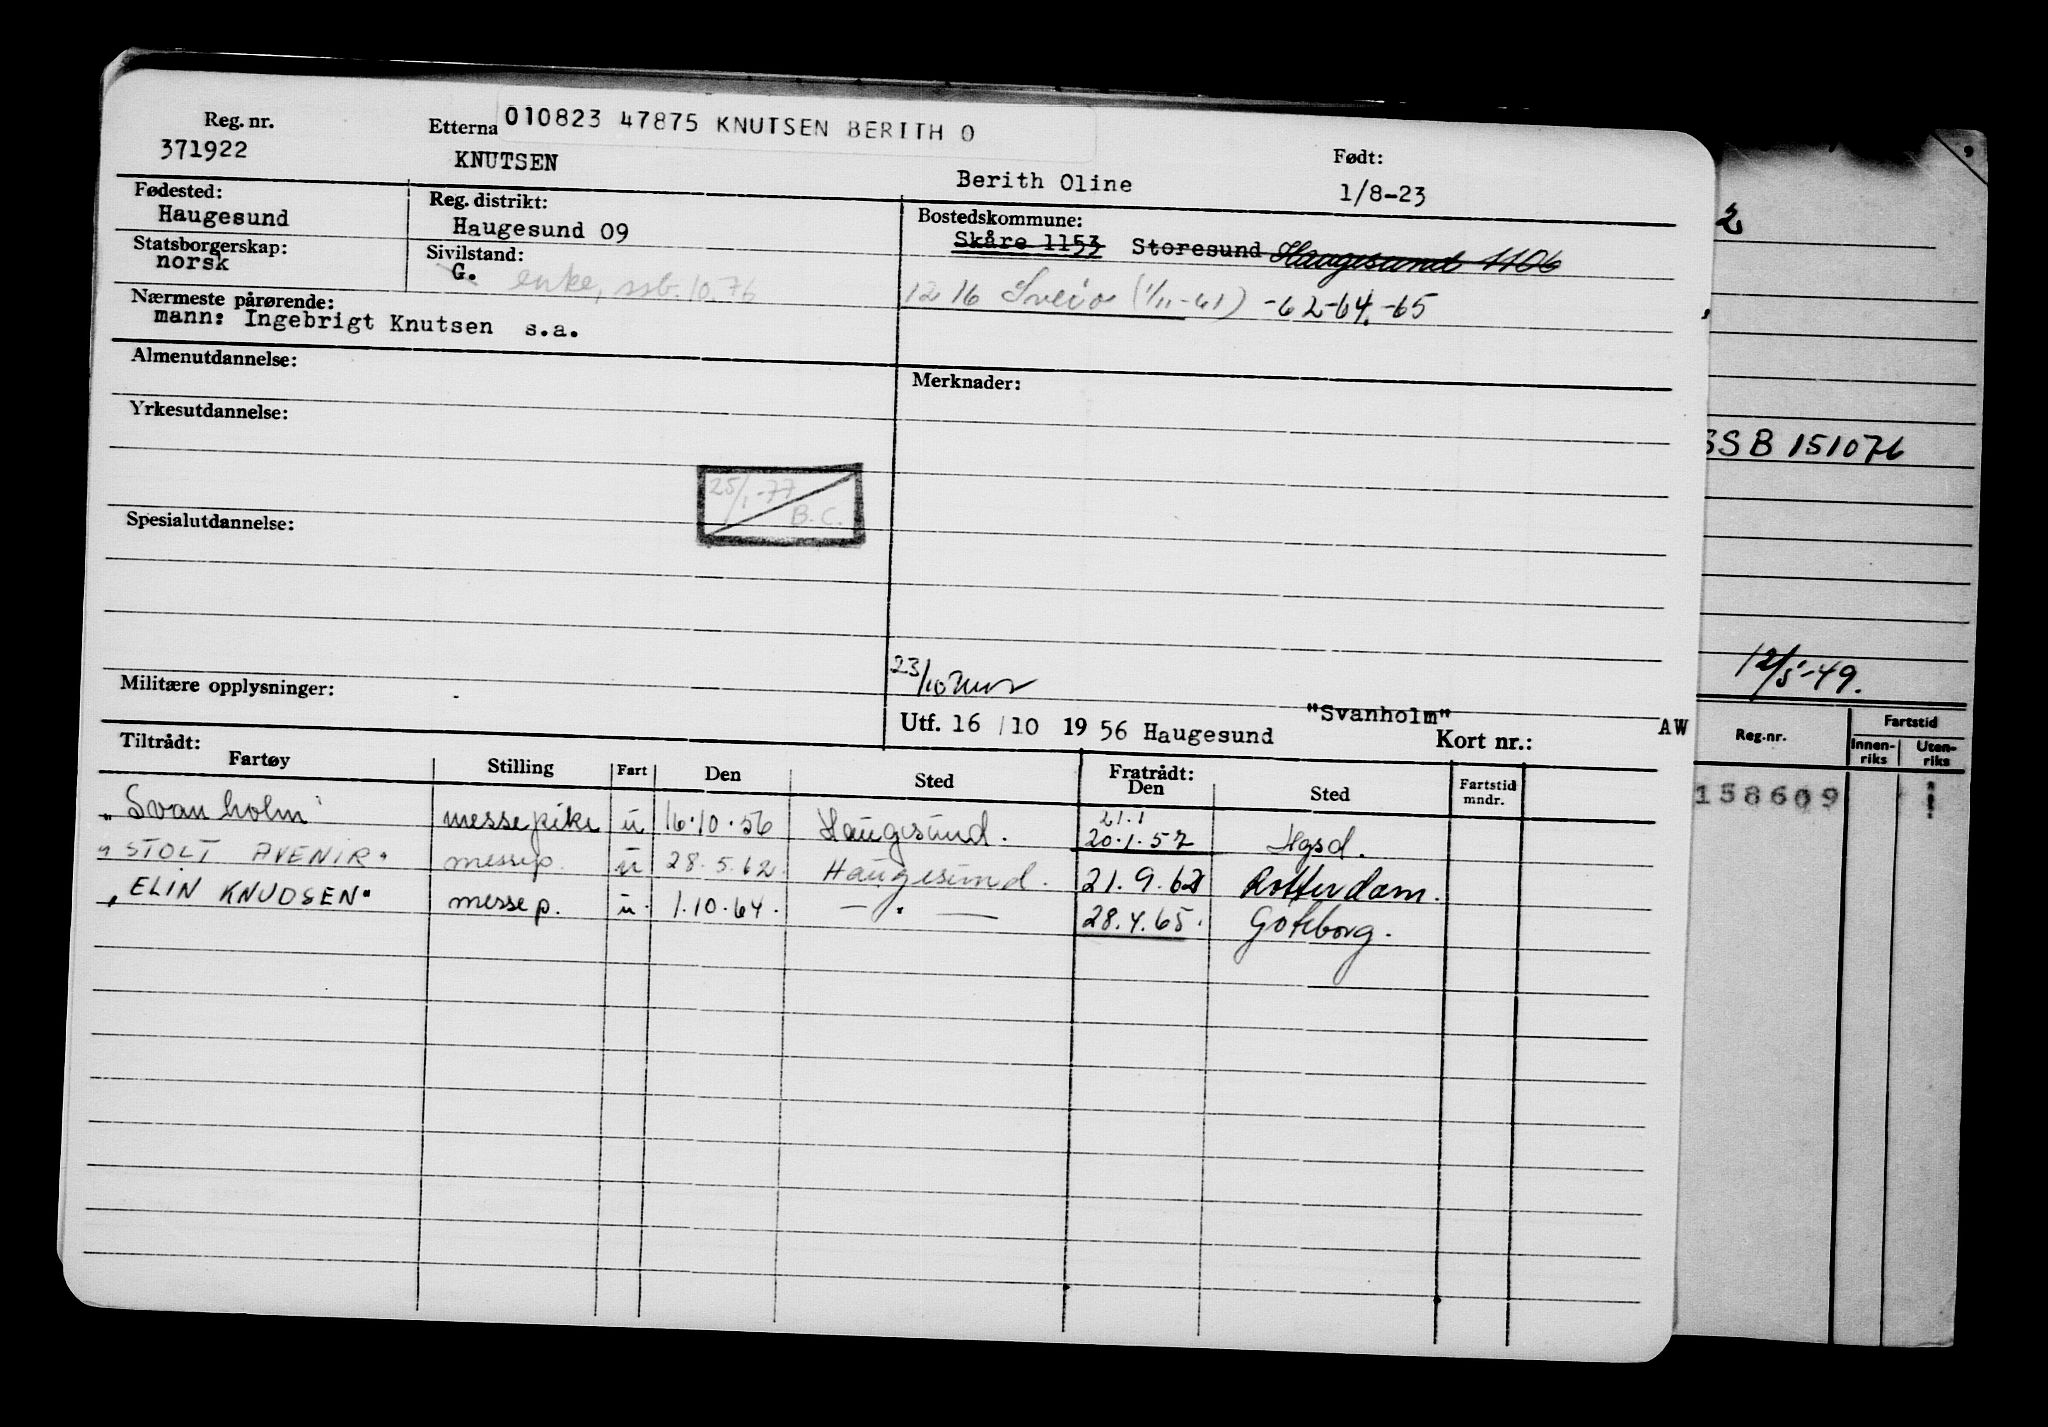 Reg. nr. Etterna 010823 47875 KNUTSEN BERITH O Født:
371922 KNUTSEN Berith Oline 1/8-23
Fødested: Reg. distrikt: Bostedskommune:
Haugesund Haugesund 09 Skåre 1153 Storesund Haugesund 1106
Statsborgerskap: Sivilstand:
norsk G. enke, ssb. 10.76 1216 Sveio (1/11-61) -62-64.-65
Nærmeste pårørende:
mann: Ingebrigt Knutsen s.a.
Almenutdannelse: Merknader:
Yrkesutdannelse:
25/1-77
B.C.
Spesialutdannelse:
23/10
Militære opplysninger:
Utf. 16/10 1956 Haugesund "Svanholm" Kort nr.: AW
Tiltrådt: Fratrådt:
Fartøy Stilling Fart Den Sted Den Sted Fartstid mndr.
21.1
"Svanholm" messepike u 16.10.56 Haugesund. 20.1.57 Hgsd.
"STOLT AVENIR" messep. u 28.5.62 Haugesund. 21.9.62 Rotterdam.
"ELIN KNUDSEN" messep. u. 1.10.64. — " — 28.4.65. Goteborg.
2
SSB 151076
12/5-49.
Reg.nr. Fartstid
Innen-riks Uten-riks
158609